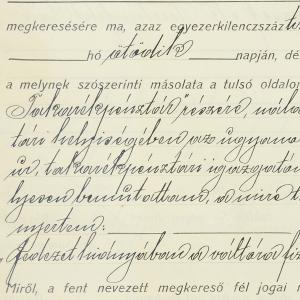 megkeresésére ma, azaz egyezerkilenczszáz
hó ötödik napján, dé
a melynek szószerinti másolata a tulsó oldalo
Takarékpénztár részére,
tári helyiségében az ugyana
úr, takarékpénztári igazgató
lyesen bemutattam, a mire
nyertem:
fedezet hiányában a váltóra fiz
Miről, a fent nevezett megkereső fél jogai